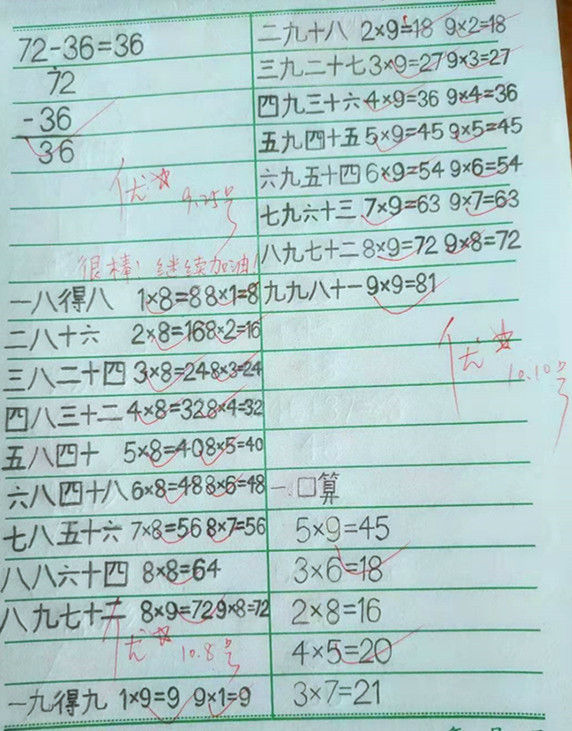 72-36=36
72
-36
36
优 9.25号
很棒！继续加油！
一八得八 1×8=8 8×1=8
二八十六 2×8=16 8×2=16
三八二十四 3×8=24 8×3=24
四八三十二 4×8=32 8×4=32
五八四十 5×8=40 8×5=40
六八四十八 6×8=48 8×6=48
七八五十六 7×8=56 8×7=56
八八六十四 8×8=64
八九七十二 8×9=72 9×8=72
优 10.8号
一九得九 1×9=9 9×1=9
二九十八 2×9=18 9×2=18
三九二十七 3×9=27 9×3=27
四九三十六 4×9=36 9×4=36
五九四十五 5×9=45 9×5=45
六九五十四 6×9=54 9×6=54
七九六十三 7×9=63 9×7=63
八九七十二 8×9=72 9×8=72
九九八十一 9×9=81
优 10.10号
一.口算
5×9=45
3×6=18
2×8=16
4×5=20
3×7=21